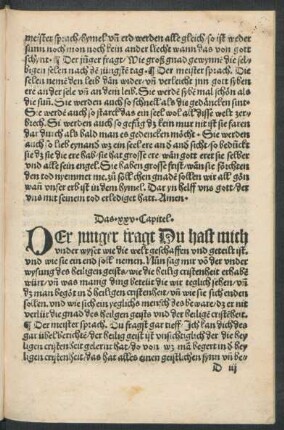 meister sprach/hymel vñ erd werden alle gleich/so ist weder
sunn noch mon noch kein ander liecht wann das von gott
schynt. ¶ Der iũger fragt/Wie groß gnad gewynne die sel-
bigen selen nach dē iũngstē tag. ¶ Der meister sprach. Die
selen nemē den leib dañ wider/vñ verleicht jnn gott syben
ere an der sele vñ an dem leib. Sie werdē sybē mal schön als
die suñ. Sie werden auch so schnell als die gedäncken sint.
Sie werdē auch so starck das ein seel wol alle disse welt zer-
brech. Sie werden auch so gefüg dz kein mur nit ist sie faren
dar durch als bald man es gedencken möcht. Sie werden
auch so lieb eynand wz ein seel ere an d' and' siht/so bedückt
sie dz sie die ere hab/sie hat grosse ere wān gott eret sie selber
vnd alle sein engel. Sie haben grosse frist/wañ sie förchten
den tod nymmer me. zů solichen gnadē sollen wir all gön
wañ vnser erb ist in dem hymel. Dar zů helff vns gott/der
vns mit seinem tod erlediget hatt. Amen.
Das .xxv. Capitel.
DEr junger fragt Du hast mich
vnder wyset wie die welt geschaffen vnd geteilt ist.
vnd wie sie ein end sol nemen. Nun sag mir võ der vnder
wysung des heiligen geists/wie die heilig cristenheit erhabē
würt/vñ was manig ding betelt die wir teglich sehen/vñ
dz man begat in d' heiligen cristenheit/vñ wie sie sich enden
sollen. vnd wie sich ein yeglichs mensch des beware/dz er nit
verlür die gnad des heiligen geists vnd der heiligē cristēheit.
¶ Der meister sprach. Du fragst gar tieff. Ich kan dich des
gar übel berichtē/der heilig geist ist vnsichtiglich der die hey
ligen cristenheit gelernt hat/do von wz man begert in d' hey
ligen cristenheit/das hat alles einen geistlichen synn vñ be-
D iij